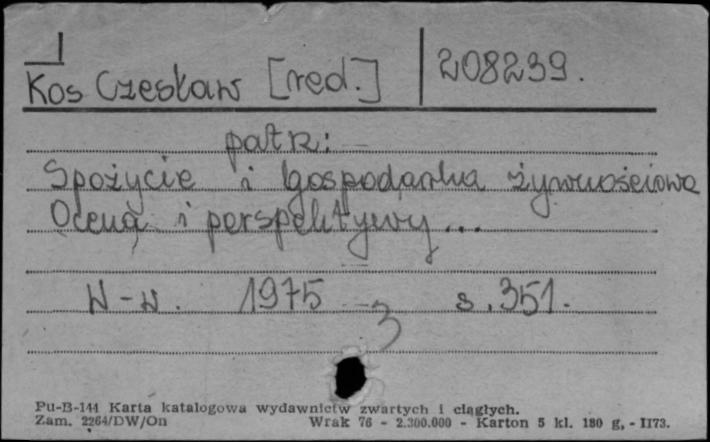 Kos Czesław [red.] 208239.
patrz:
Spożycie i gospodarka żywnościowa
Ocena i perspektywy...
W-w. 1975 s. 351.
3
Pu-B-144 Karta katalogowa wydawnictw zwartych i ciągłych.
Zam. 2264/DW/On Wrak 76 - 2.300.000 - Karton 5 kl. 180 g, - II73.